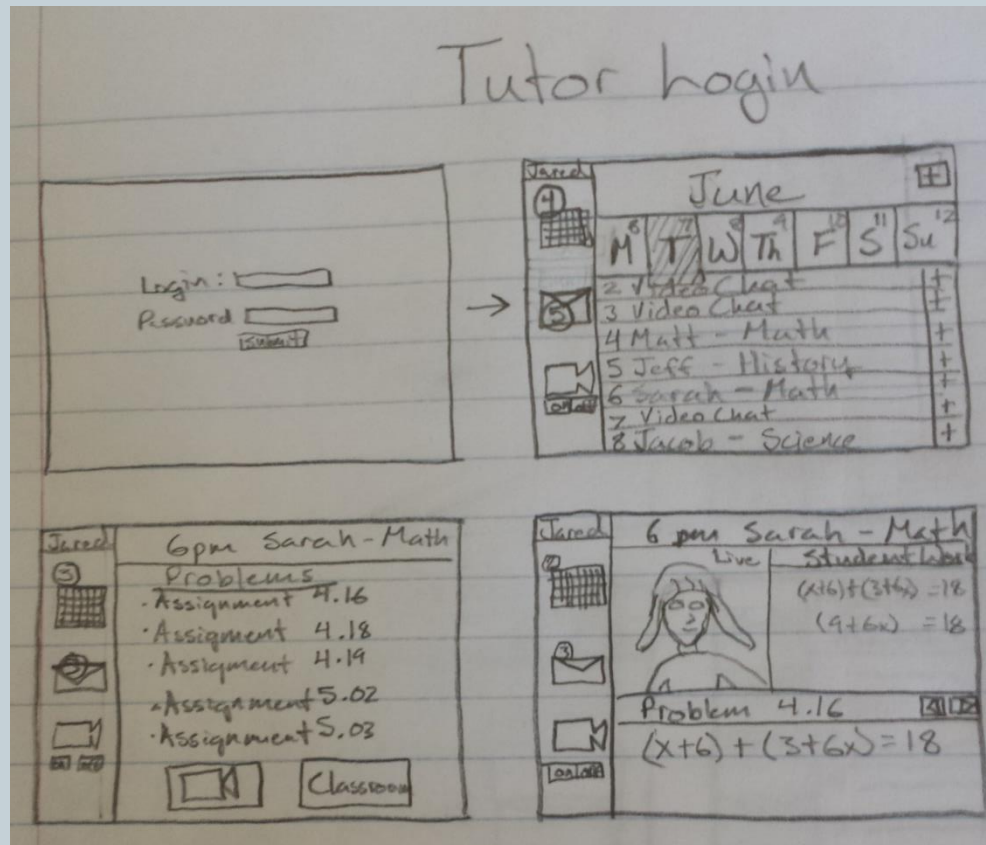 Tutor Login
Login:
Password
Submit
Jared
4
5
on off
June
+
M 6 T 7 W 8 Th 9 F 10 S 11 Su 12
2 Video Chat +
3 Video Chat +
4 Matt - Math +
5 Jeff - History +
6 Sarah - Math +
7 Video Chat +
8 Jacob - Science +
Jared
3
on off
6pm Sarah - Math
Problems
· Assignment 4.16
· Assigment 4.18
· Assigment 4.19
· Assignment 5.02
· Assignment 5.03
Classroom
Jared
3
on off
6 pm Sarah - Math
Live
Student Work
(x+6)+(3+6x) =18
(9+6x) =18
Problem 4.16
(x+6) + (3+6x) = 18